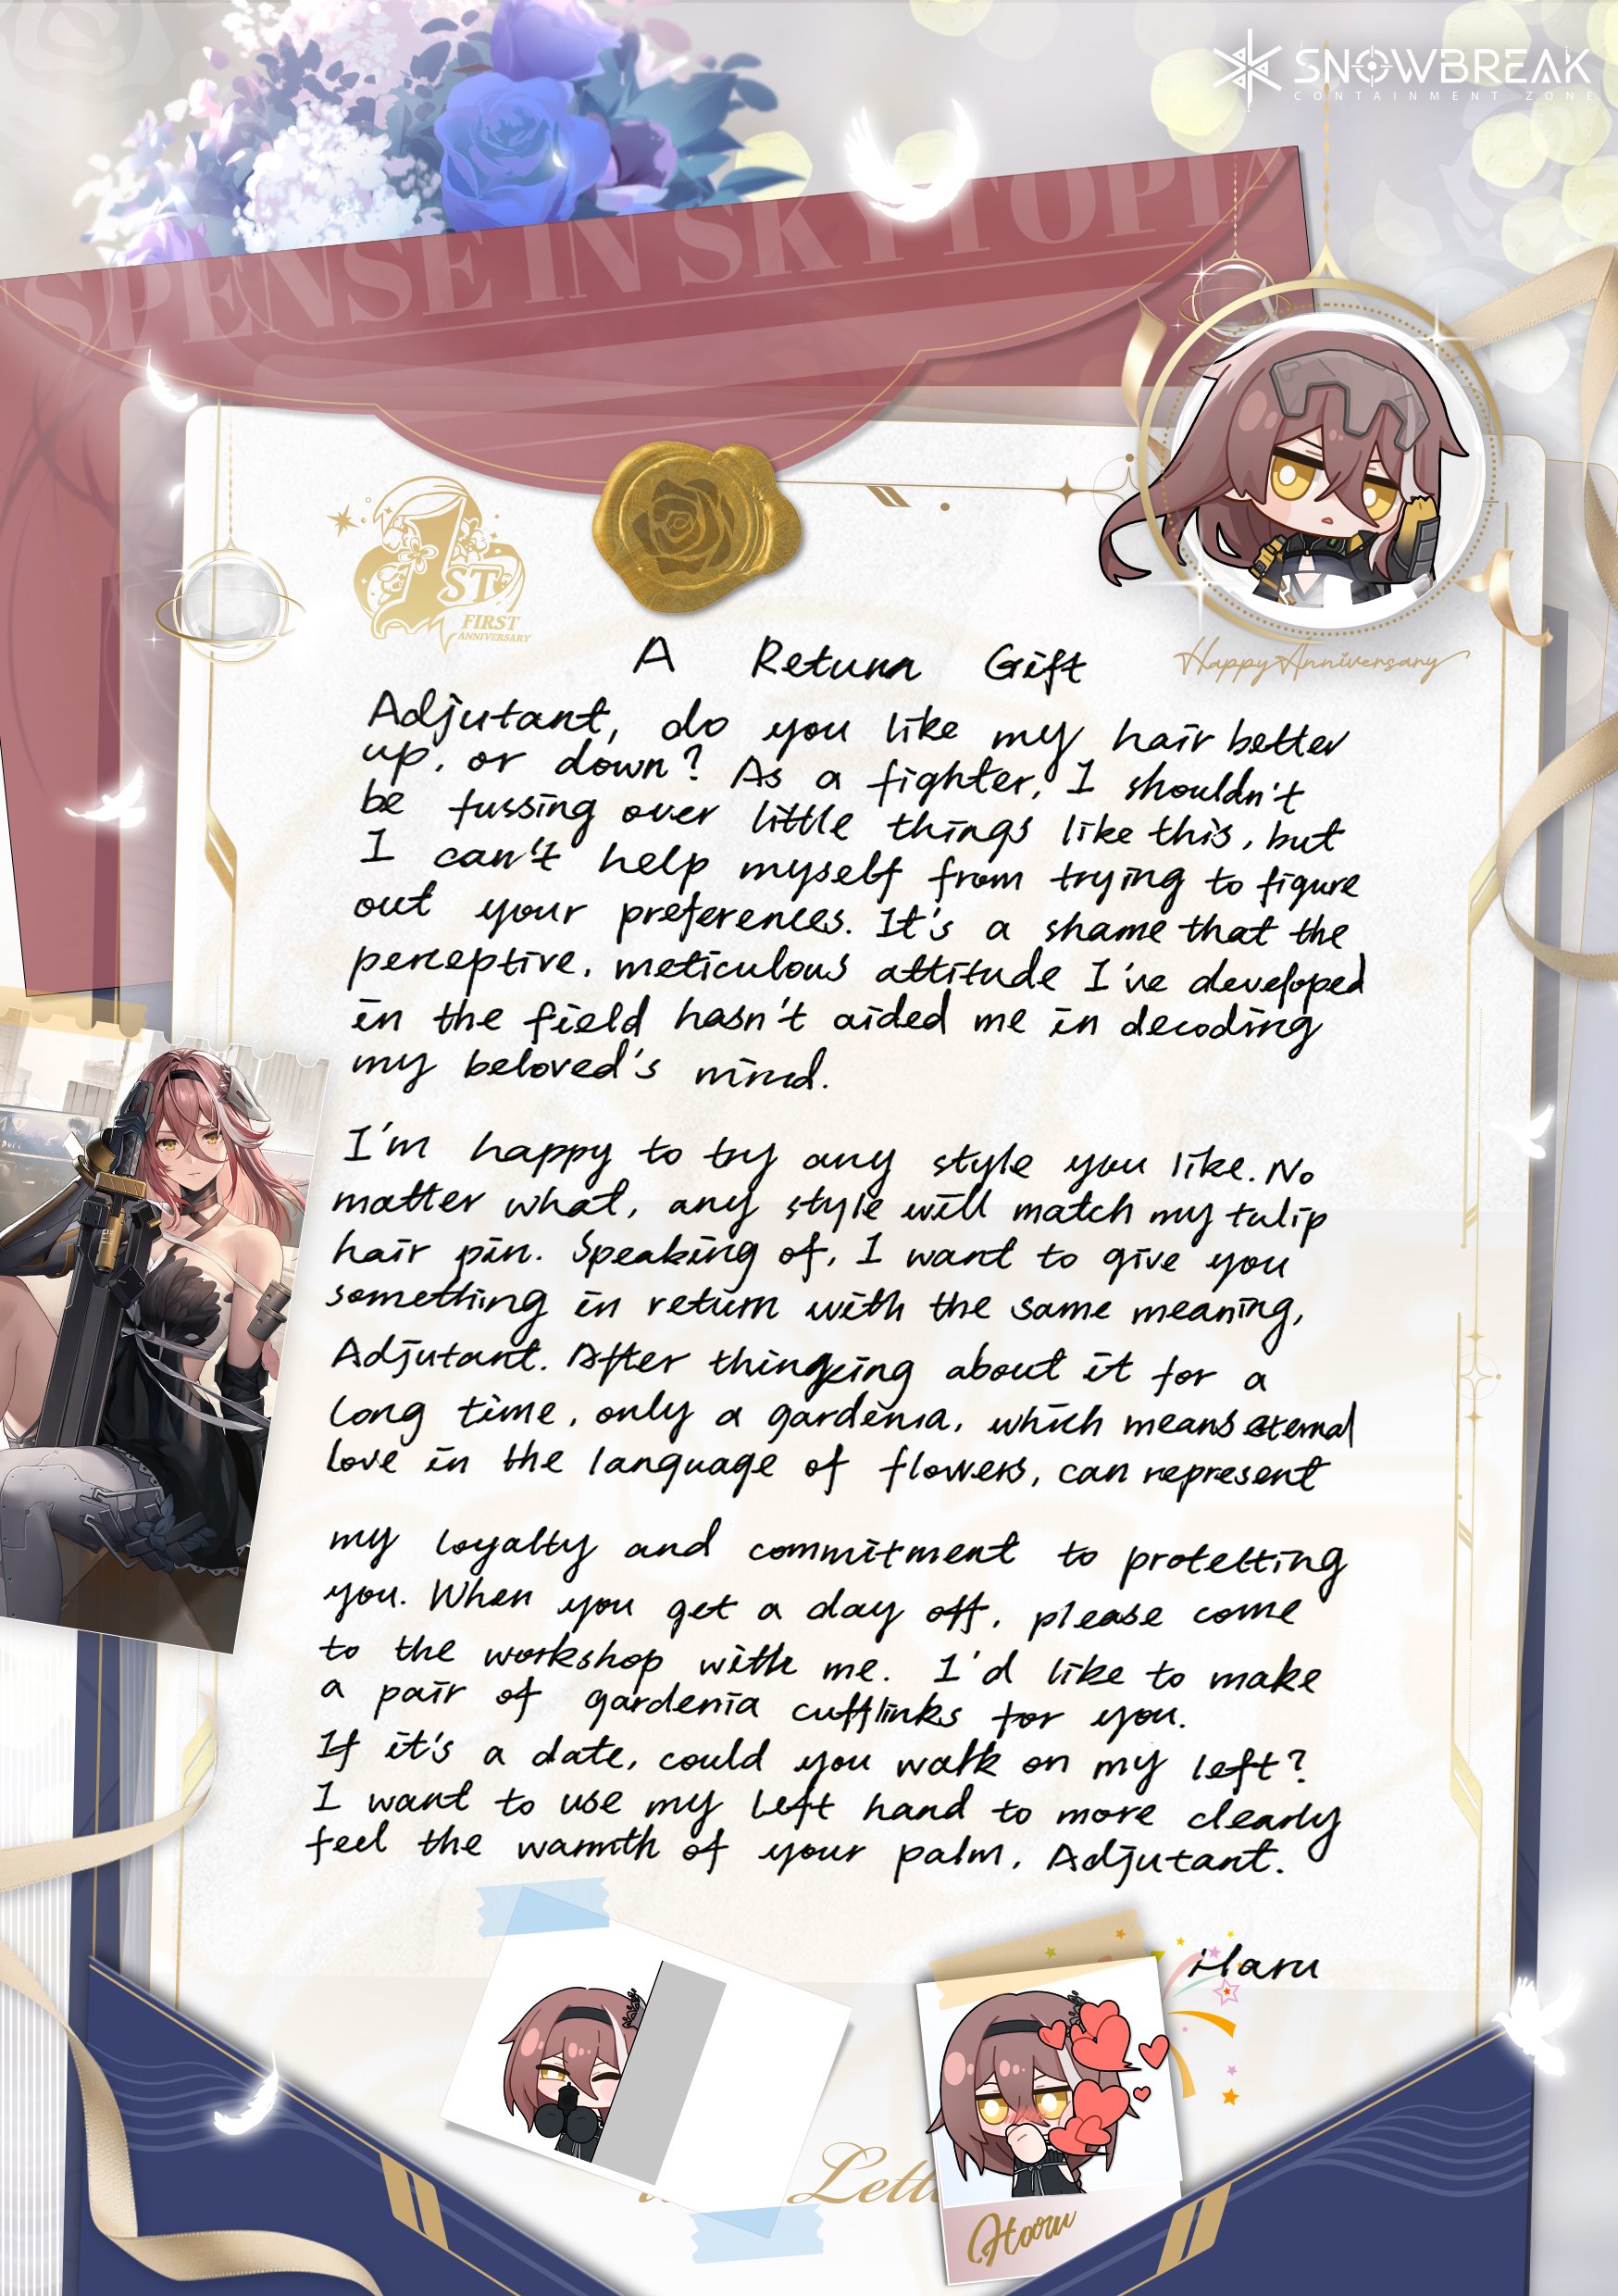 SNOWBREAK
CONTAINMENT ZONE
SPENSE IN SKYTOPIA
1ST
FIRST
ANNIVERSARY
Happy Anniversary
A Return Gift
Adjutant, do you like my hair better
up, or down? As a fighter, I shouldn't
be fussing over little things like this, but
I can't help myself from trying to figure
out your preferences. It's a shame that the
perceptive, meticulous attitude I've developed
in the field hasn't aided me in decoding
my beloved's mind.
I'm happy to try any style you like. No
matter what, any style will match my tulip
hair pin. Speaking of, I want to give you
something in return with the same meaning,
Adjutant. After thingking about it for a
long time, only a gardenia, which means eternal
love in the language of flowers, can represent
my loyalty and commitment to protecting
you. When you get a day off, please come
to the workshop with me. I'd like to make
a pair of gardenia cufflinks for you.
If it's a date, could you walk on my left?
I want to use my left hand to more clearly
feel the warmth of your palm, Adjutant.
Haru
Haru